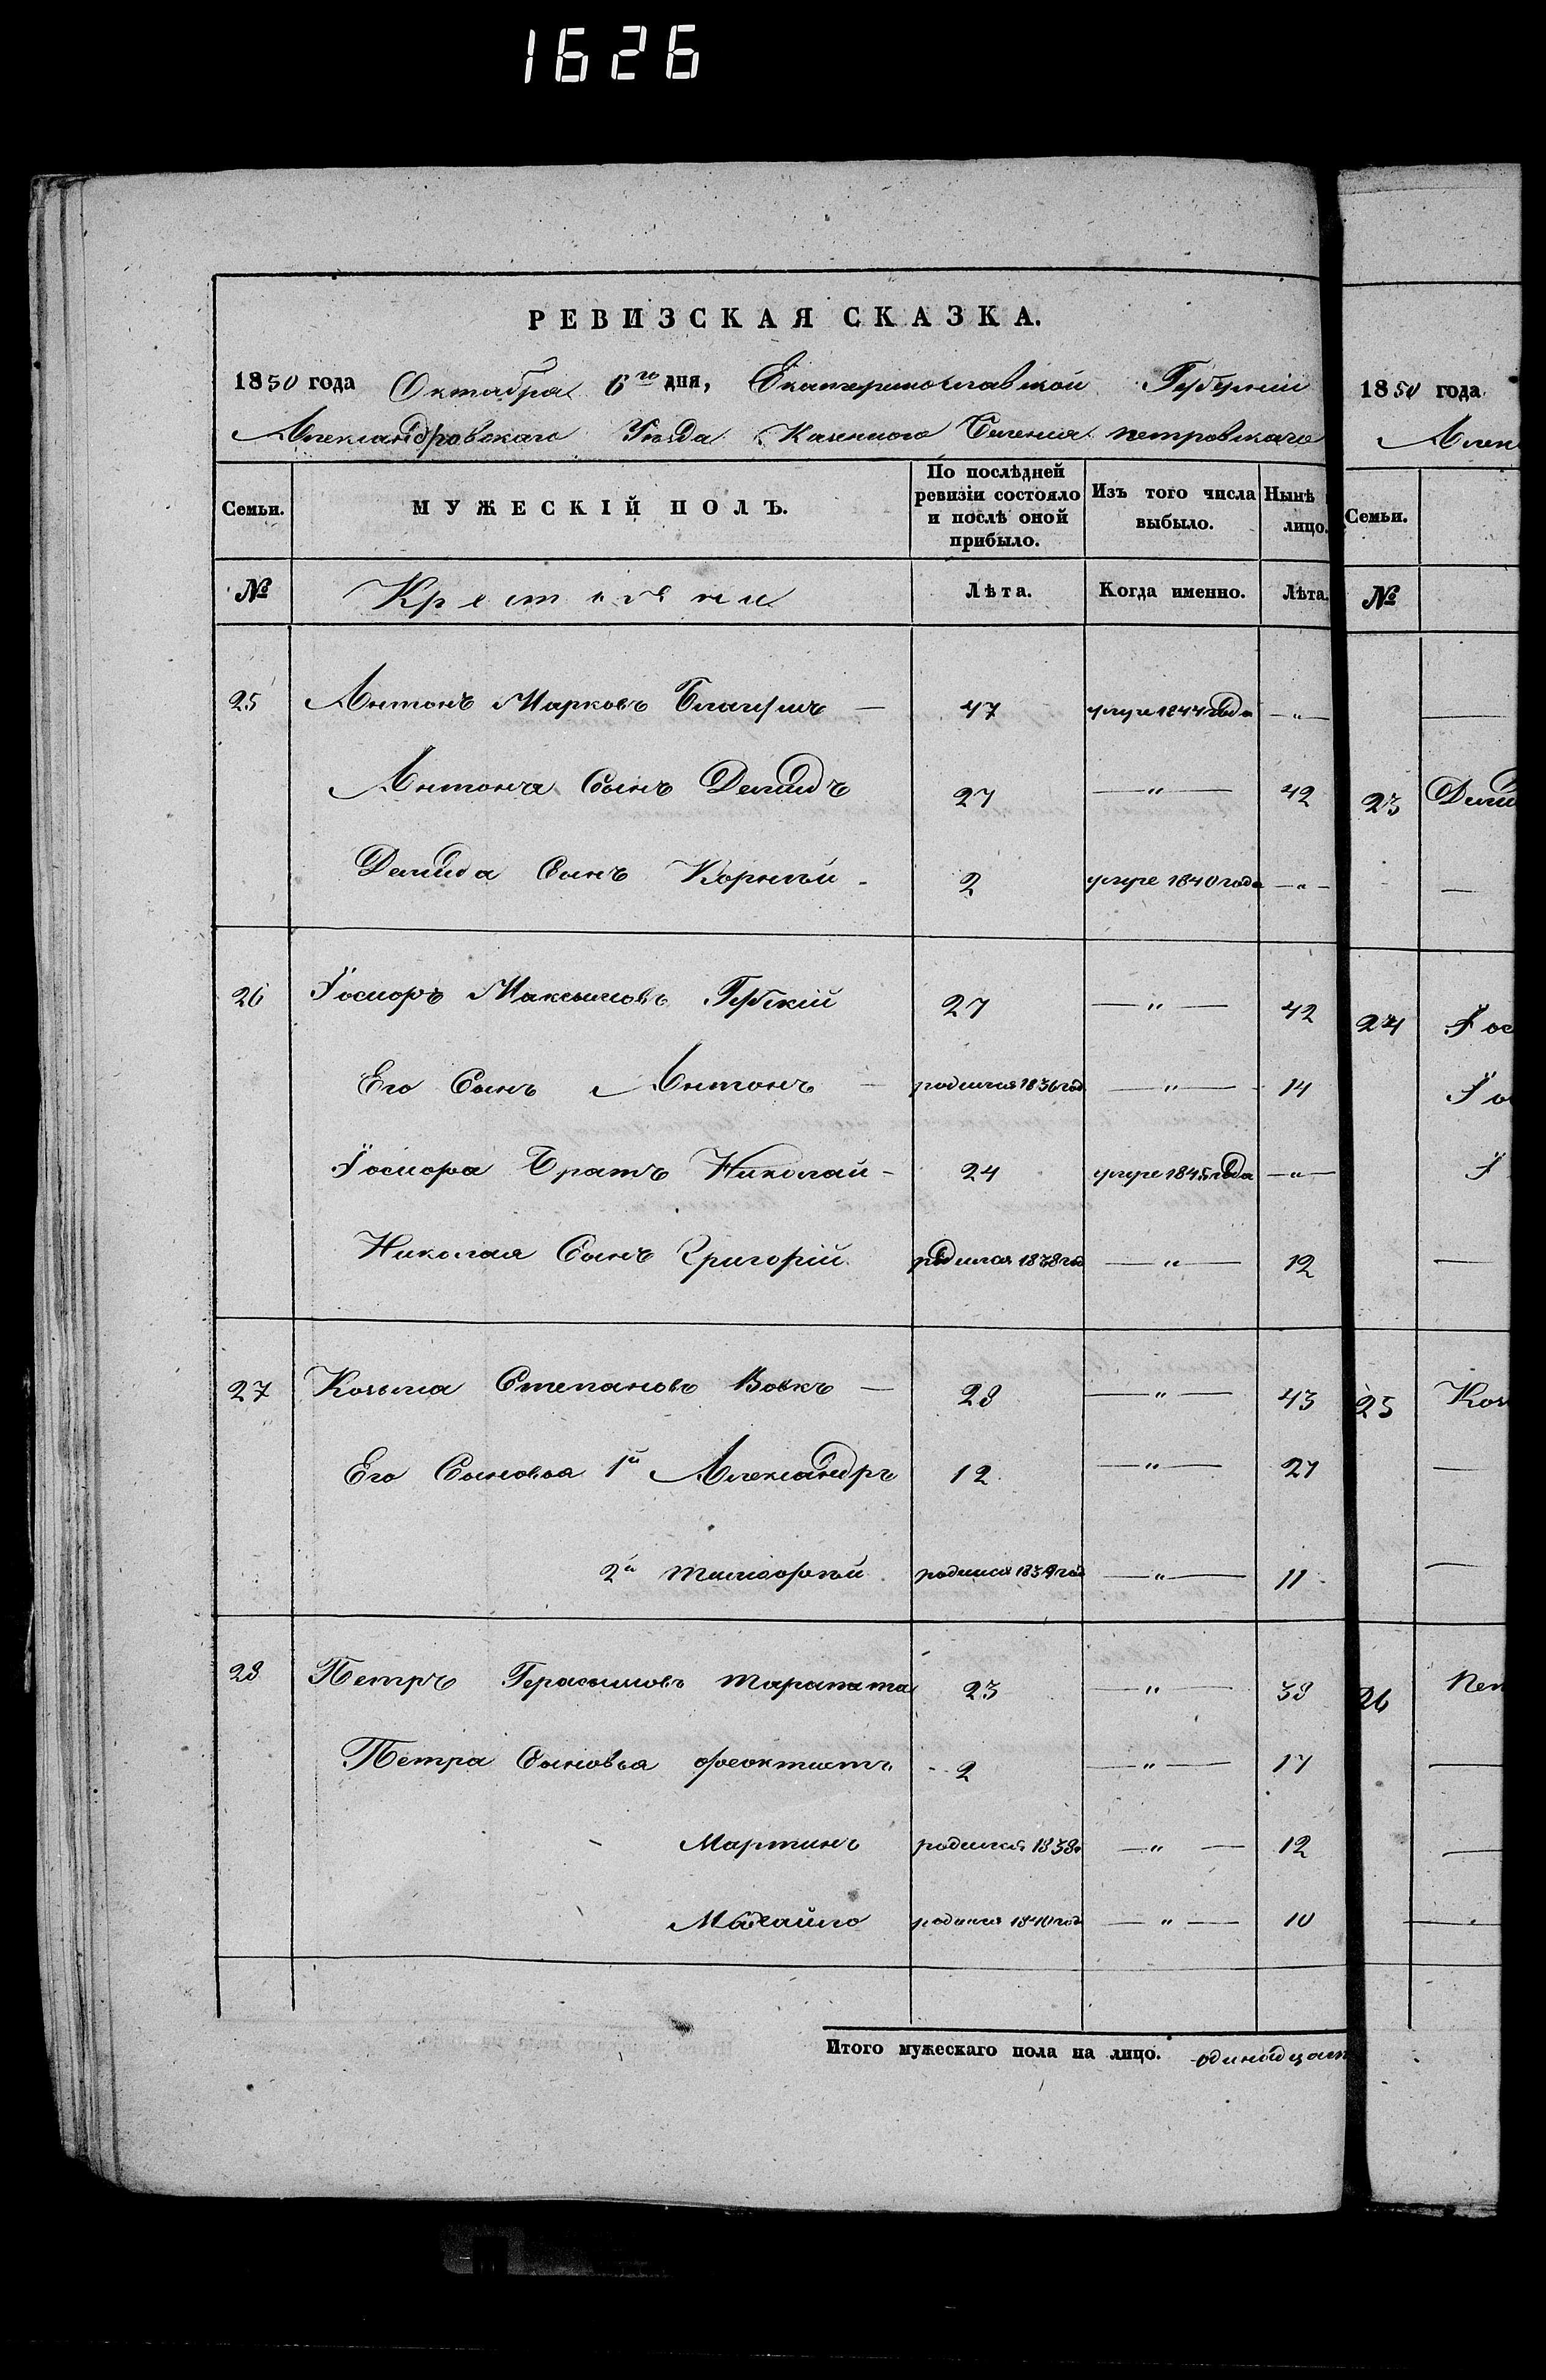 1626
РЕВИЗСКАЯ СКАЗКА.
1850 года Октября 6го дня, Екатеринославской Губерніи
Александровскаго Уѣзда Казенного Селенія петровскаго
Семьи. МУЖЕСКІЙ ПОЛЪ. По послѣдней ревизіи состояло и послѣ оной прибыло. Изъ того числа выбыло. Нынѣ лицо.
№ Крестьяне Лѣта. Когда именно. Лѣта.
25 Антонъ Марковъ 47 умре 1844 года — " —
Антона Сынъ Демидъ 27 — " — 42
Демида Сынъ Корнѣй 2 умре 1840 года — " —
26 Максимовъ 27 — " — 42
Его Сынъ Антонъ — родился 1836 год — " — 14
Братъ Николай — 24 умре 1845 года — " —
Николая Сынъ Григорій родился 1838 год — " — 12
27 Козьма Степановъ Вовкъ — 28 — " — 43
Его Сыновья 1й Александръ 12 — " — 27
2й тимофѣй родился 1839 год — " — 11
28 Петръ Герасимовъ тарапата 23 — " — 38
Петра Сыновья феоктистъ 2 — " — 17
Мартинъ родился 1838 — " — 12
Михайло родился 1840 год — " — 10
Итого мужескаго пола на лицо. одинадцат
1850 года
Алек
Семьи.
№
23 Деми
24
25 Коз
26 Пет